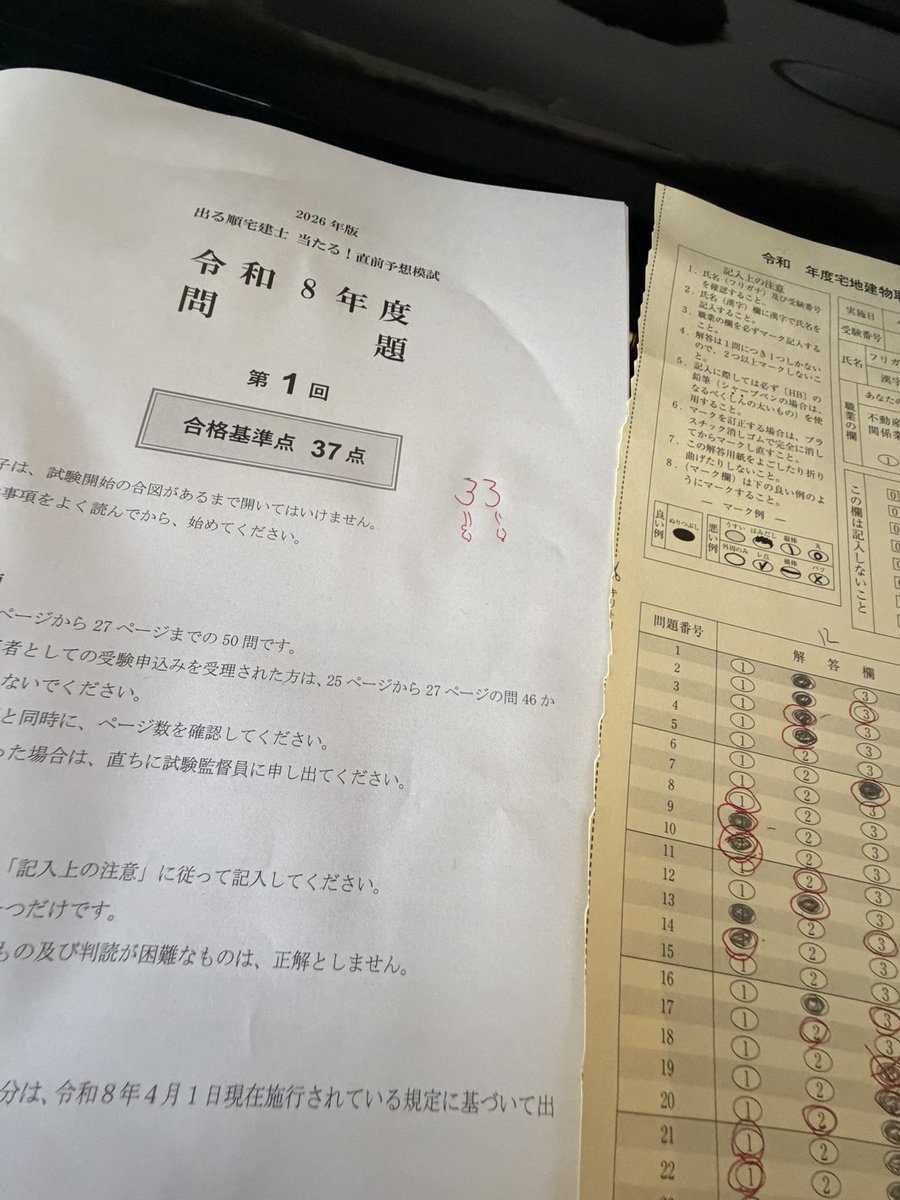 2026年版
出る順宅建士 当たる！直前予想模試
令和8年度
問題
第1回
合格基準点 37点
33
子は、試験開始の合図があるまで開いてはいけません。
事項をよく読んでから、始めてください。
ページから27ページまでの50問です。
者としての受験申込みを受理された方は、25ページから27ページの問46か
ないでください。
と同時に、ページ数を確認してください。
った場合は、直ちに試験監督員に申し出てください。
「記入上の注意」に従って記入してください。
一つだけです。
もの及び判読が困難なものは、正解としません。
分は、令和8年4月1日現在施行されている規定に基づいて出
令和 年度宅地建物取
記入上の注意
1. 氏名（フリガナ）及び受験番号
を確認すること。
2. 氏名（漢字）欄に漢字で氏名を
記入すること。
3. 職業の欄を必ずマーク記入する
こと。
4. 解答は1問につき1つしかない
ので、2つ以上マークしないこ
と。
5. 記入に際しては必ず〔HB〕の
鉛筆（シャープペンの場合は、
なるべくしんの太いもの）を使
用すること。
6. マークを訂正する場合は、プラ
スチック消しゴムで完全に消し
てからマークし直すこと。
7. この解答用紙をよごしたり折り
曲げたりしないこと。
8. （マーク欄）は下の良い例のよ
うにマークすること。
— マーク例 —
良い例
ぬりつぶし
悪い例
うすい はみだし 縦棒 丸
外周のみ レ点 横棒 バツ
実施日
受験番号
氏名
フリガ
漢字
職業の欄
あなたの
不動産
関係業
①
この欄は記入しないこと
12
問題番号
解答欄
1
2
3
4
5
6
7
8
9
10
11
12
13
14
15
16
17
18
19
20
21
22